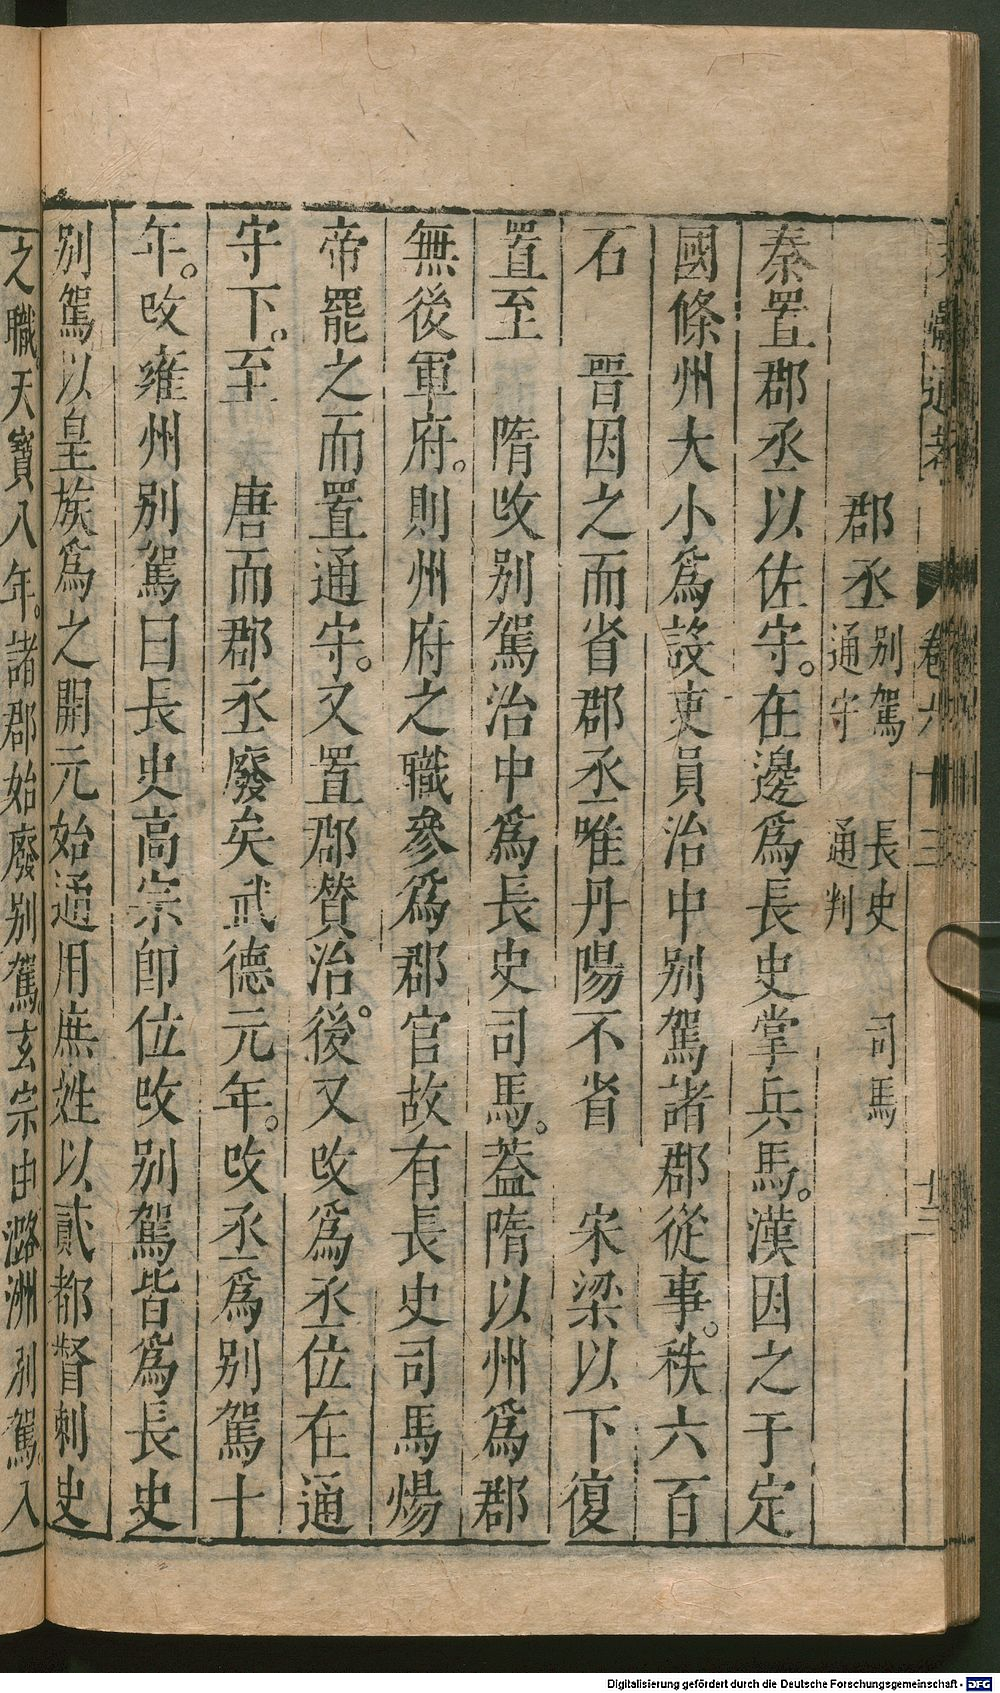 通考 卷六十三 廿三
郡丞 別駕 長史 司馬
通守 通判
秦置郡丞以佐守。在邊爲長史掌兵馬。漢因之于定
國條州大小爲設吏員治中別駕諸郡從事。秩六百
石 晉因之而省郡丞唯丹陽不省 宋梁以下復
置至 隋改別駕治中爲長史司馬。蓋隋以州爲郡
無後軍府。則州府之職參爲郡官故有長史司馬煬
帝罷之而置通守。又置郡贊治。後又改爲丞位在通
守下。至 唐而郡丞廢矣武德元年。改丞爲別駕十
年。改雍州別駕曰長史高宗即位改別駕皆爲長史
別駕以皇族爲之開元始通用庶姓以貳都督刺史
之職。天寶八年。諸郡始廢別駕。玄宗由潞洲別駕。入
Digitalisierung gefördert durch die Deutsche Forschungsgemeinschaft - DFG